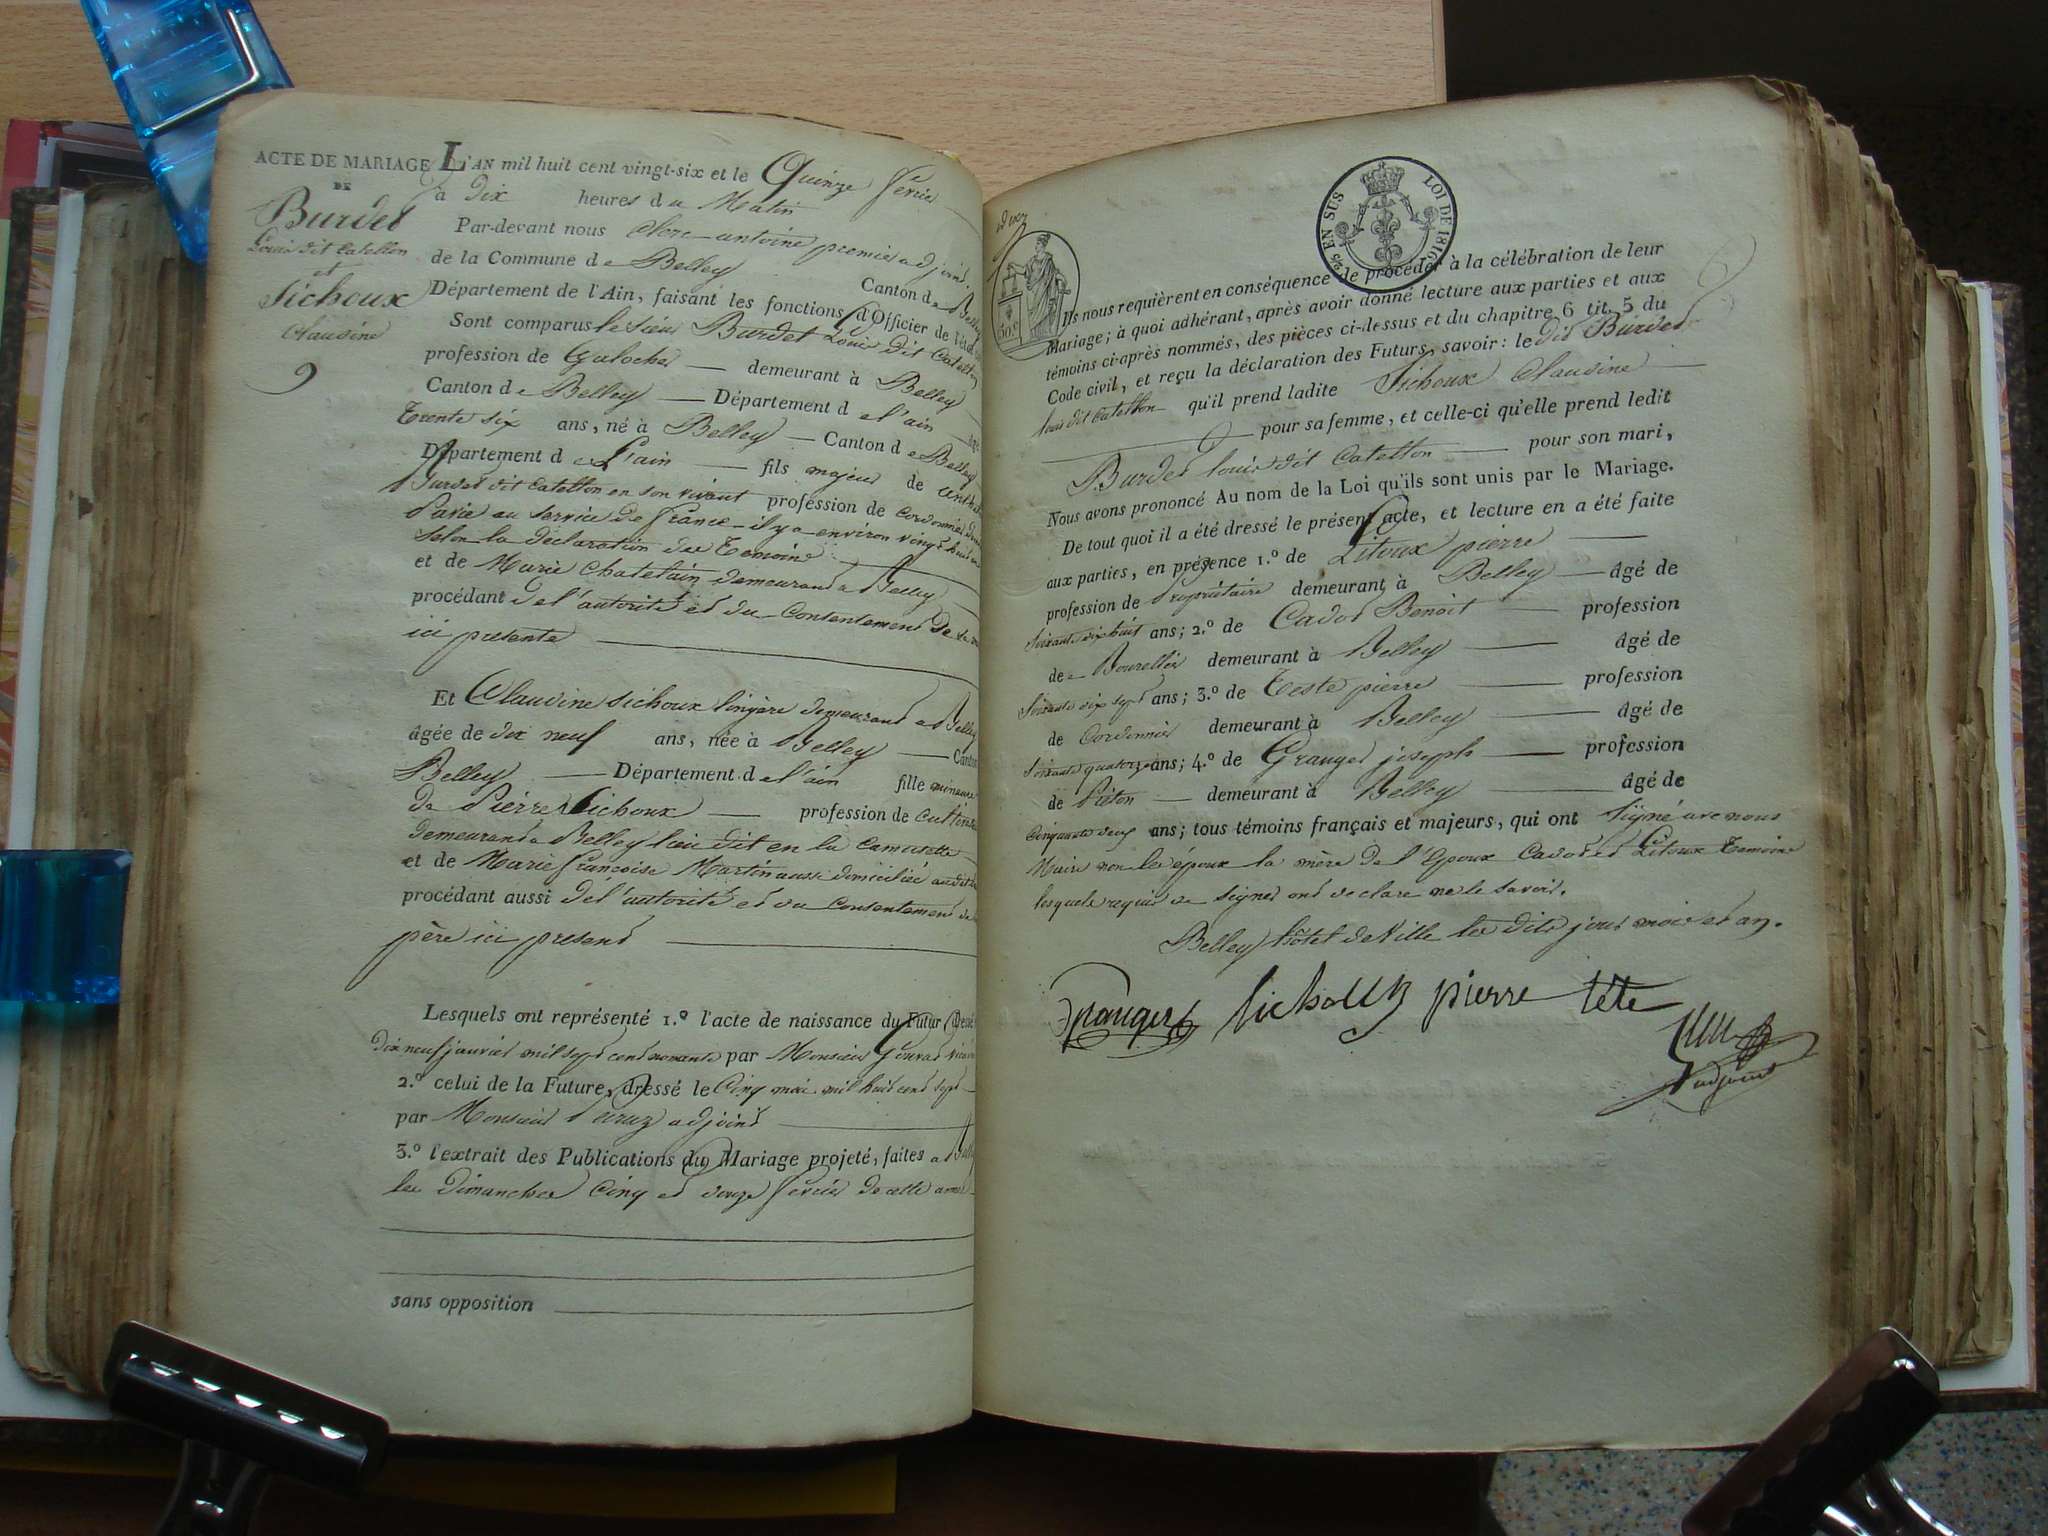 ACTE DE MARIAGE
DE
Burdet
Louis dit Catellon
et
Sichoux
Claudine
9
L'AN mil huit cent vingt-six et le Quinze février
à dix heures du Matin
Par-devant nous antoine premier adjoint
de la Commune de Belley Canton de Belley
Département de l'Ain, faisant les fonctions d'Officier de l'état
Sont comparus le sieur Burdet Louis dit Catellon
profession de Galocher demeurant à Belley
Canton de Belley Département de l'ain âgé
Trente six ans, né à Belley Canton de Belley
Département de L'ain fils majeur de
Burdet dit Catellon en son vivant profession de Cordonnier
au service de france il y a environ vingt huit ans
Selon la declaration des Temoins
et de Marie Chatelain demeurant a Belley
procédant de l'autorité et du Consentement de sa
ici presente
Et Claudine Sichoux lingère demeurant a Belley
âgée de dix neuf ans, née à Belley Canton
Belley Département de l'ain fille mineure
de Pierre Sichoux profession de
demeurant a Belley lieu dit en la Camusette
et de Marie françoise Martin aussi domiciliée
procédant aussi de l'autorité et du Consentement de
père ici present
Lesquels ont représenté 1.º l'acte de naissance du Futur dressé
dix neuf janvier mil sept cent nonante par Monsieur
2.º celui de la Future, dressé le Cinq mai mil huit cent sept
par Monsieur adjoint
3.º l'extrait des Publications du Mariage projeté, faites a Belley
les dimanches Cinq et douze février de cette année
sans opposition
25 EN SUS LOI DE 1816
50 c
Ils nous requièrent en conséquence de procéder à la célébration de leur
Mariage; à quoi adhérant, après avoir donné lecture aux parties et aux
témoins ci-après nommés, des pièces ci-dessus et du chapitre 6 tit. 5 du
Code civil, et reçu la déclaration des Futurs, savoir: le dit Burdet
louis dit Catellon qu'il prend ladite Sichoux Claudine
pour sa femme, et celle-ci qu'elle prend ledit
Burdet louis dit Catellon pour son mari,
Nous avons prononcé Au nom de la Loi qu'ils sont unis par le Mariage.
De tout quoi il a été dressé le présent acte, et lecture en a été faite
aux parties, en présence 1.º de Litoux pierre
profession de Propriétaire demeurant à Belley âgé de
Soixante dix huit ans; 2.º de Cadot Benoit profession
de Bourellier demeurant à Belley âgé de
Soixante dix sept ans; 3.º de Teste pierre profession
de Cordonnier demeurant à Belley âgé de
Soixante quatorze ans; 4.º de Granger joseph profession
de Piéton demeurant à Belley âgé de
Cinquante deux ans; tous témoins français et majeurs, qui ont Signé avec nous
Maire non les époux la mère de l'Epoux Cadot et Litoux Temoins
lesquels requis de signer ont declare ne le savoir.
Belley hôtel de Ville les dits jour mois et an.
granger Sichoux pierre tete
adjoint